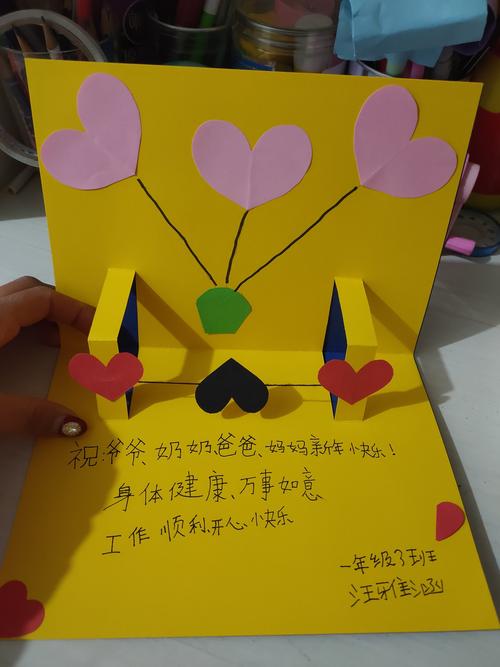 祝:爷爷、奶奶、爸爸、妈妈新年快乐!
身体健康、万事如意
工作顺利、开心、快乐
一年级3班
汪雅